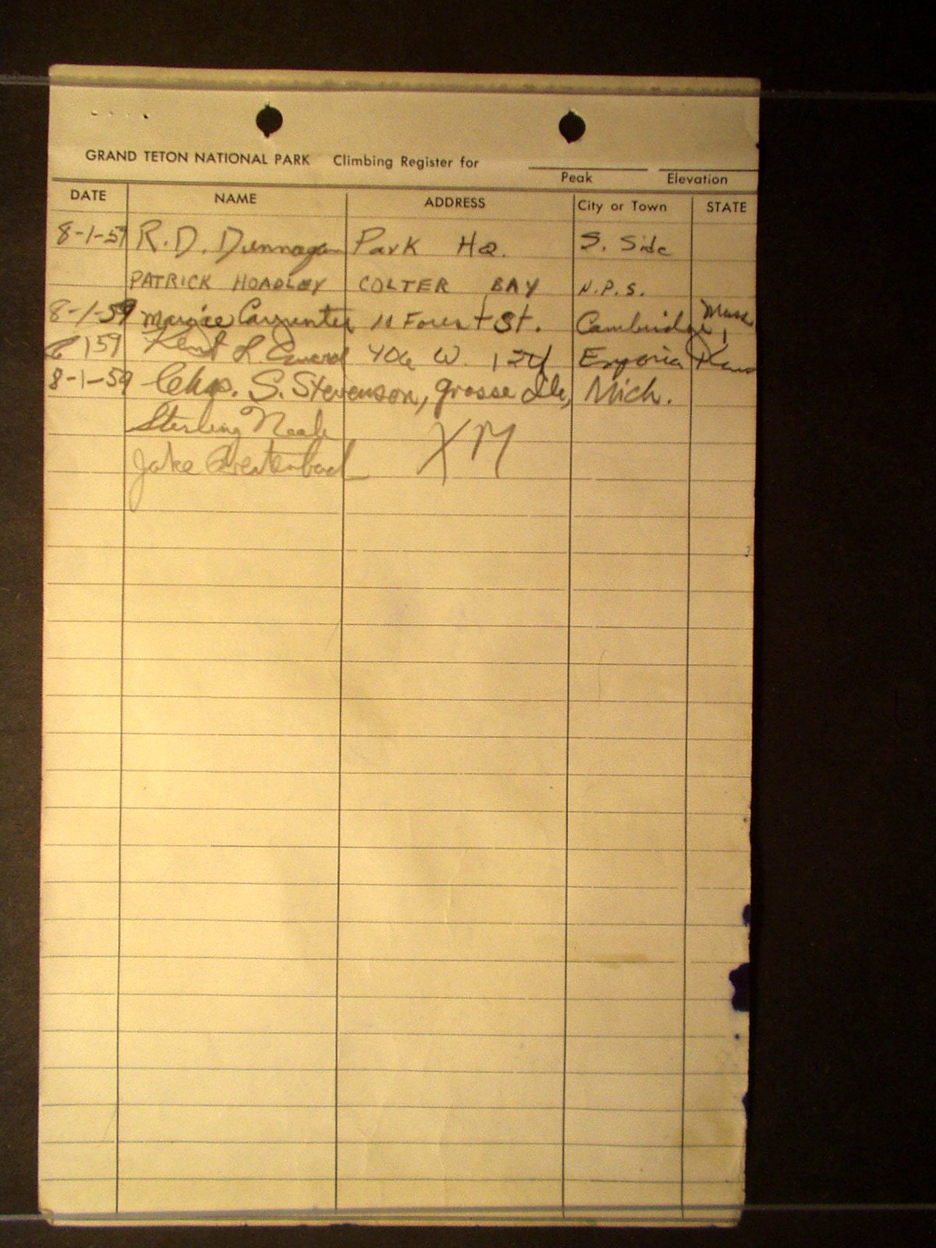 GRAND TETON NATIONAL PARK Climbing Register for
Peak Elevation
DATE NAME ADDRESS City or Town STATE
8-1-59 R. D. Dunnagan Park HQ. S. Side
PATRICK HOADLEY COLTER BAY N.P.S.
8-1-59 Margie Carpenter 11 Forest St. Cambridge Mass
159 Kent L 406 W. 12th Emporia Kans
8-1-59 Chas. S. Stevenson, Grosse Ile, Mich.
Sterling Neale
Jake Breitenbach XM